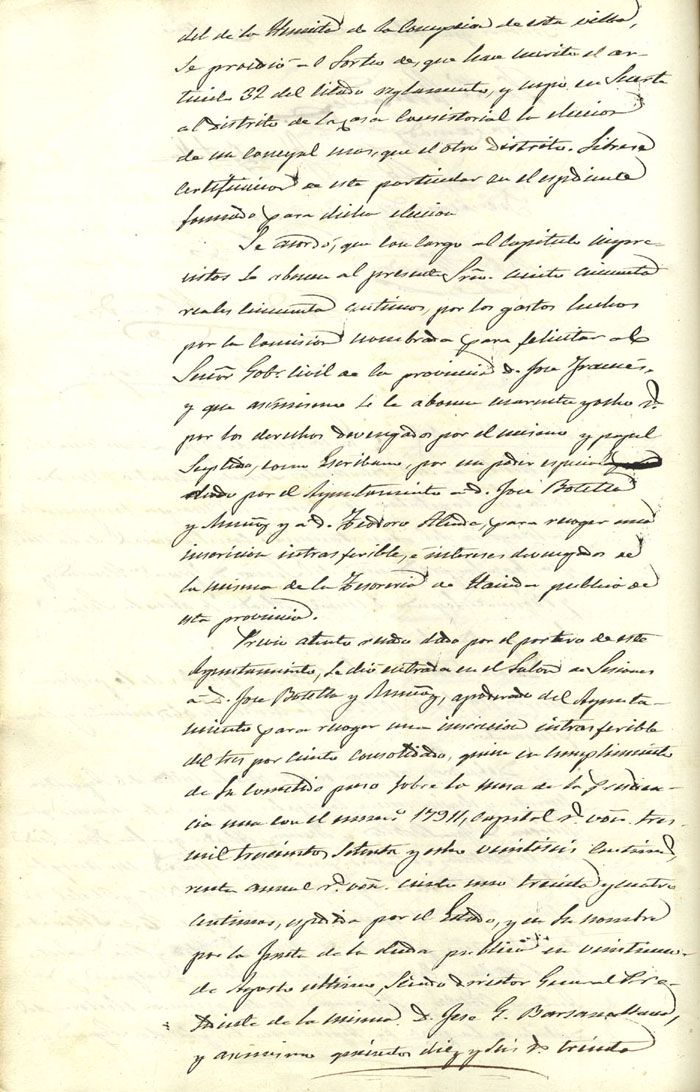 del de la Hermita de la Concepcion de esta villa,
se procedió al Sorteo de, que hace merito el ar-
ticulo 32 del citado reglamento, y cupo en Suerte
al Distrito de la Casa Consistorial la eleccion
de un Concejal mas, que el otro Distrito. Librese
Certificacion de este particular en el espediente
formado para dicha eleccion
Se acordó, que con cargo al Capitulo impre-
vistos se abonen al presente Srio. ciento cincuenta
reales cincuenta centimos, por los gastos hechos
por la Comision nombrada para felicitar al
Señor Gobr. Civil de la provincia D. Jose Francés,
y que asimismo se le abonen cuarenta y ocho r.
por los derechos devengados por el mismo y papel
Suplido, como Escribano, por un poder especial
dado por el Ayuntamiento a D. Jose Botella
y Muñoz y a D. Teodoro Alenda, para recoger una
inscricion intrasferible, e intereses devengados de
la misma de la Tesoreria de Hacienda publica de
esta provincia.
Previo atento recado dado por el portero de este
Ayuntamiento, se dio entrada en el Salon de Sesiones
a D. Jose Botella y Muñoz, apoderado del Ayunta-
miento para recoger una inscricion intrasferible
del tres por ciento consolidado, quien en cumplimiento
de su cometido puso sobre la mesa de la Presiden-
cia una con el numero 17911, Capital r. von. tres
mil trescientos setenta y ocho veintiseis Centimos,
renta anual r. von. ciento uno treinta y cuatro
centimos, espedida por el Estado, y en su nombre
por la Junta de la deuda publica en veintiuno
de Agosto ultimo, siendo Director General Pre-
sidente de la misma D. Jose G. Barzanallana,
y asimismo quinientos diez y seis r. treinta